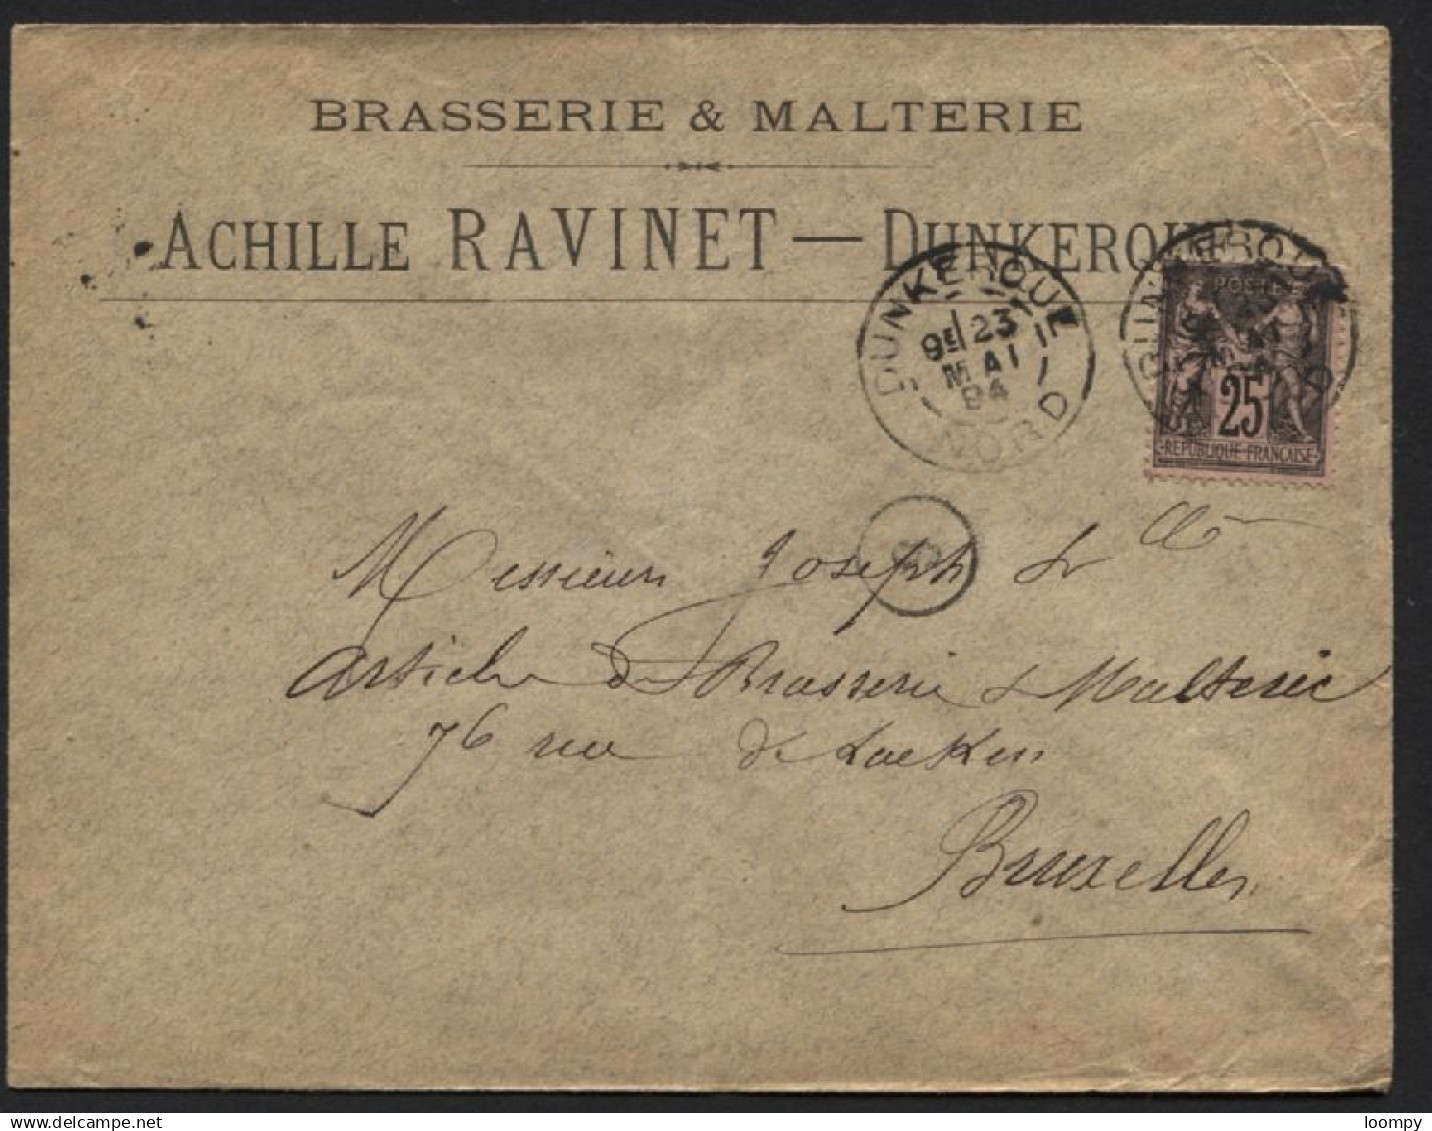 BRASSERIE & MALTERIE
ACHILLE RAVINET — DUNKERQUE
DUNKERQUE
9E 23
MAI
94
NORD
POSTE
25
REPUBLIQUE FRANCAISE
Messieurs Joseph & Cie
Article de Brasserie & Malterie
76 rue de Laeken
Bruxelles
delcampe.net
loompy